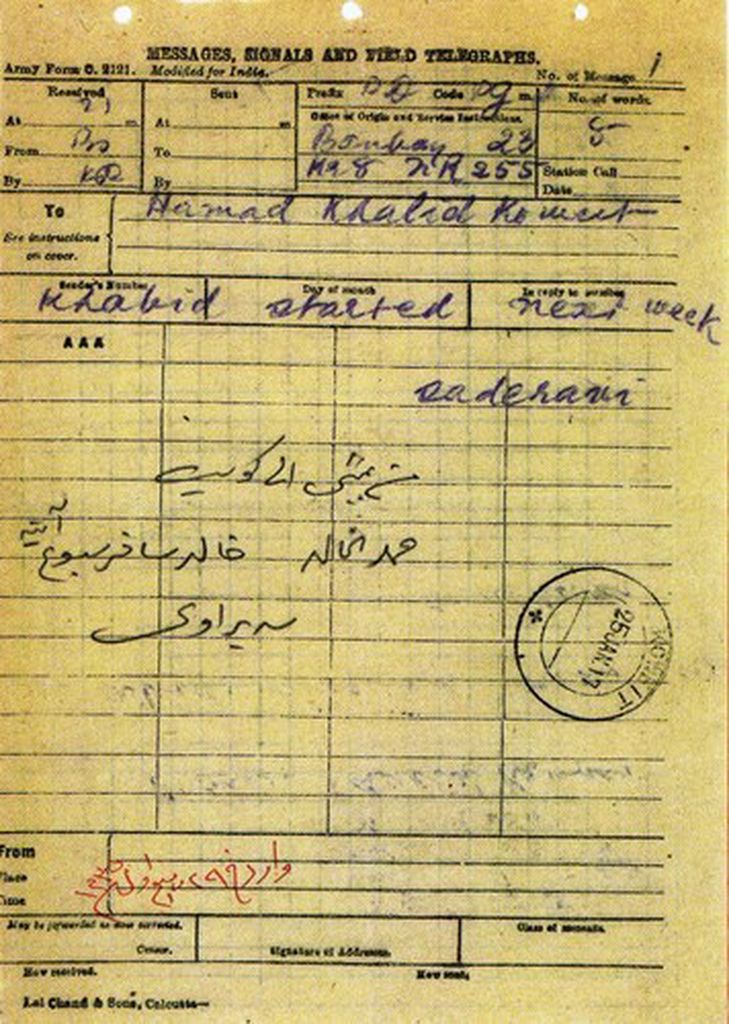 MESSAGES, SIGNALS AND FIELD TELEGRAPHS.
Army Form C. 2121. Modified for India. No. of Message 1
Received
At m
From
By
Sent
At m
To
By
Prefix Code m
Office of Origin and Service Instructions.
Bombay 23
No. of words.
8
Station Call
Date
To
See instructions
on cover.
Hamad Khalid Koweit
Sender's Number Day of month In reply to number
Khabid started next week
AAA
saderavi
من بمبئي الى كويت
حمد الخالد خالد سافر سبوع
سديراوي
KUWAIT
25 JAN 17
From
Place
Time
May be forwarded as now corrected.
Censor. Signature of Addressee. Class of
How received. How sent.
Lal Chand & Sons, Calcutta—